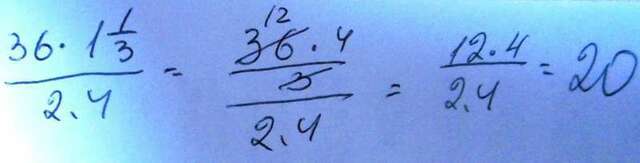 36 · 1 1/3 / 2,4 = 36 · 4 / 3 / 2,4 = 12 · 4 / 2,4 = 20
12